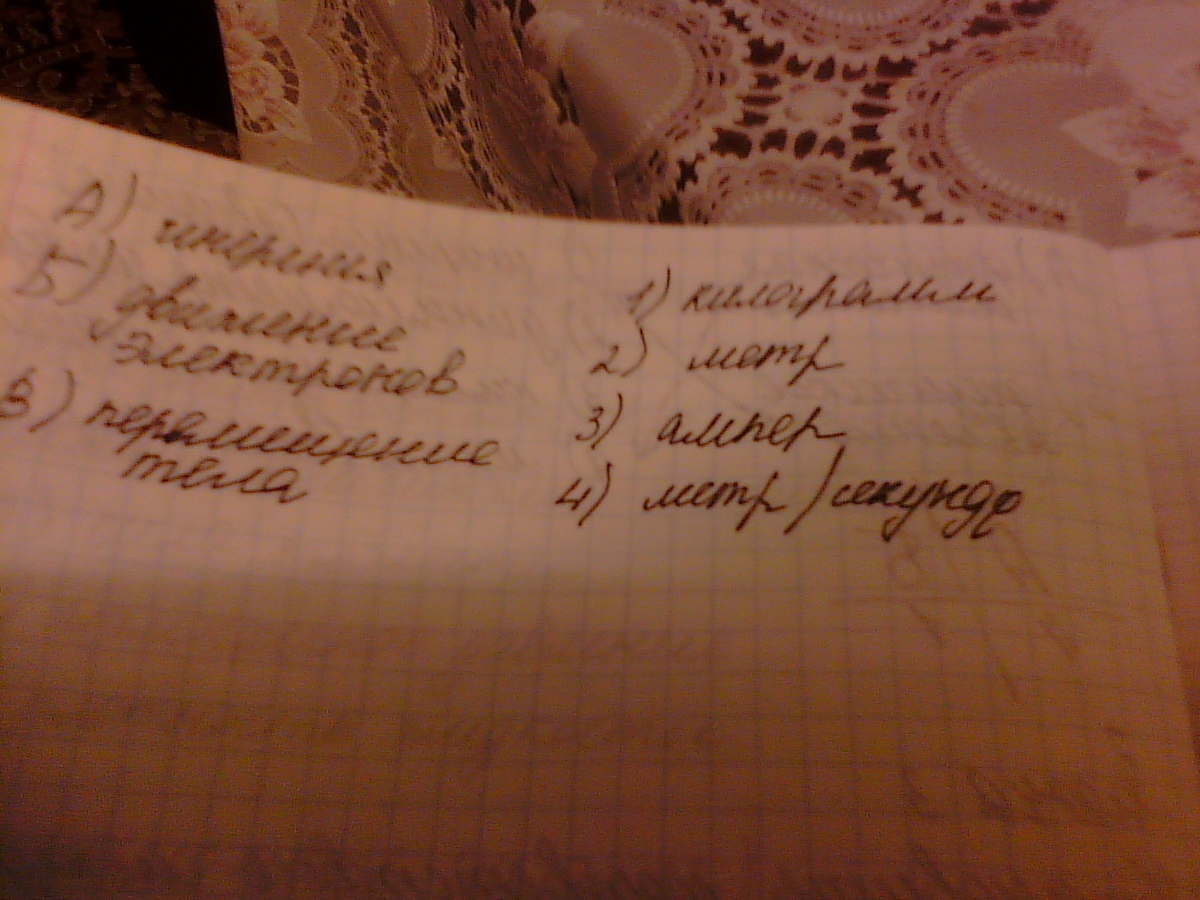 А) инерция
Б) движение
электронов
В) перемещение
тела
1) килограмм
2) метр
3) ампер
4) метр/секунда